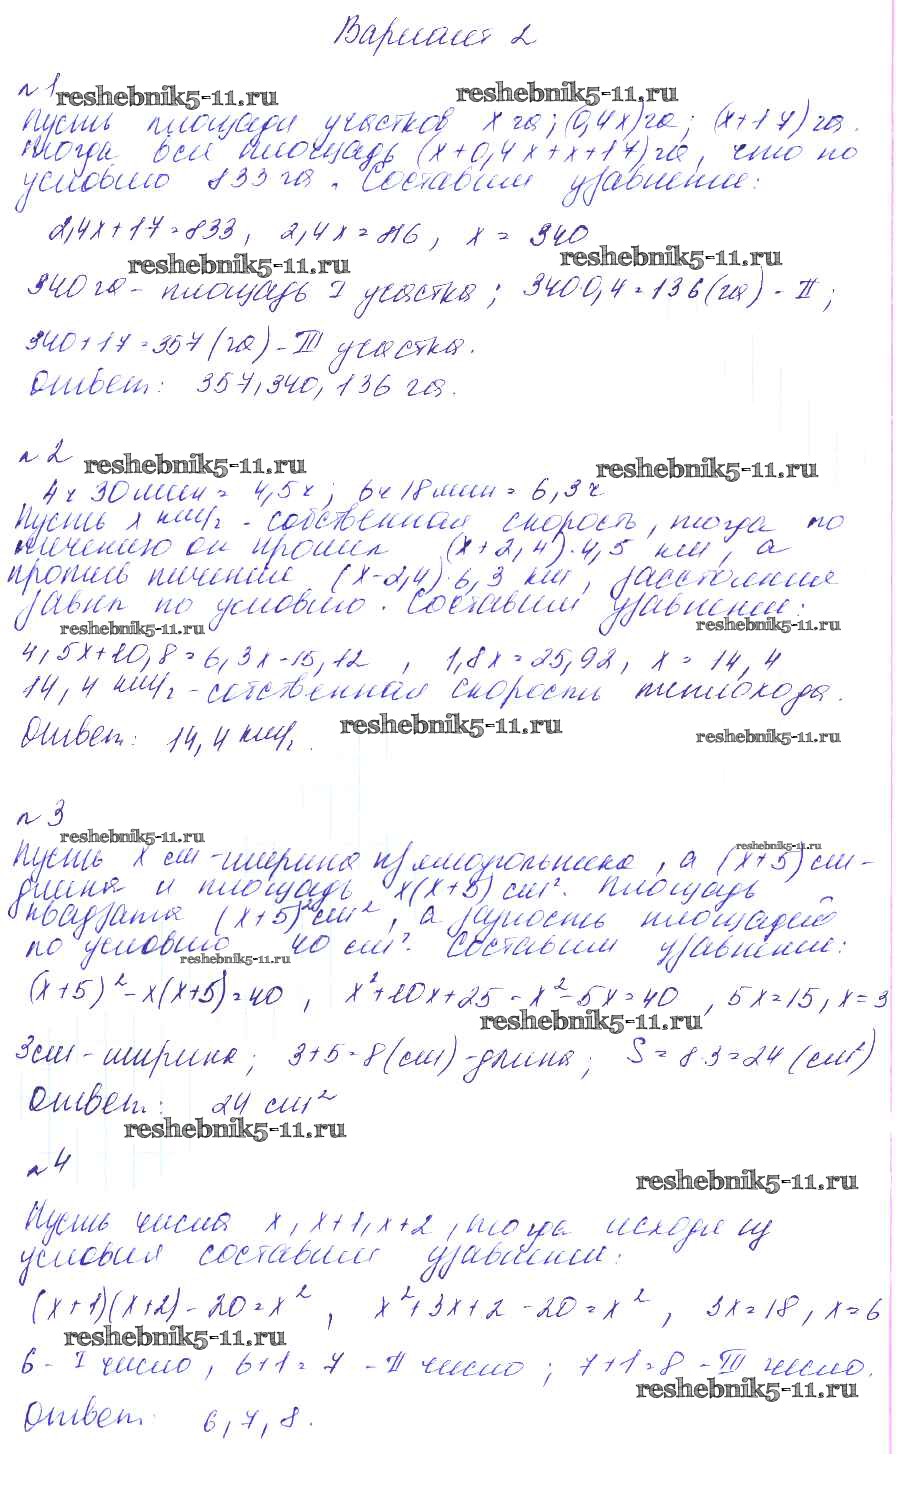 Вариант 2
№1
reshebnik5-11.ru reshebnik5-11.ru
Пусть площади участков x га; (0,4x) га; (x+17) га.
Тогда вся площадь (x+0,4x+x+17) га, что по
условию 833 га. Составим уравнение:
2,4x+17=833, 2,4x=816, x=340
reshebnik5-11.ru reshebnik5-11.ru
340 га - площадь I участка; 340·0,4=136 (га) - II;
340+17=357 (га) - III участка.
Ответ: 357, 340, 136 га.
№2
reshebnik5-11.ru reshebnik5-11.ru
4ч 30мин = 4,5ч; 6ч 18мин = 6,3ч
Пусть x км/ч - собственная скорость, тогда по
течению он прошел (x+2,4)·4,5 км, а
против течения (x-2,4)·6,3 км, расстояния
равны по условию. Составим уравнение:
reshebnik5-11.ru reshebnik5-11.ru
4,5x+10,8=6,3x-15,12, 1,8x=25,92, x=14,4
14,4 км/ч - собственная скорость теплохода.
Ответ: 14,4 км/ч.
reshebnik5-11.ru reshebnik5-11.ru
№3
reshebnik5-11.ru reshebnik5-11.ru
Пусть x см - ширина прямоугольника, а (x+5) см -
длина и площадь x(x+5) см². Площадь
квадрата (x+5)² см², а разность площадей
по условию 40 см². Составим уравнение:
reshebnik5-11.ru
(x+5)²-x(x+5)=40, x²+10x+25-x²-5x=40, 5x=15, x=3
reshebnik5-11.ru
3см - ширина; 3+5=8 (см) - длина; S=8·3=24 (см²)
Ответ: 24 см²
reshebnik5-11.ru
№4
reshebnik5-11.ru
Пусть числа x, x+1, x+2, тогда исходя из
условия составим уравнение:
(x+1)(x+2)-20=x², x²+3x+2-20=x², 3x=18, x=6
reshebnik5-11.ru
6 - I число, 6+1=7 - II число; 7+1=8 - III число.
reshebnik5-11.ru
Ответ: 6, 7, 8.